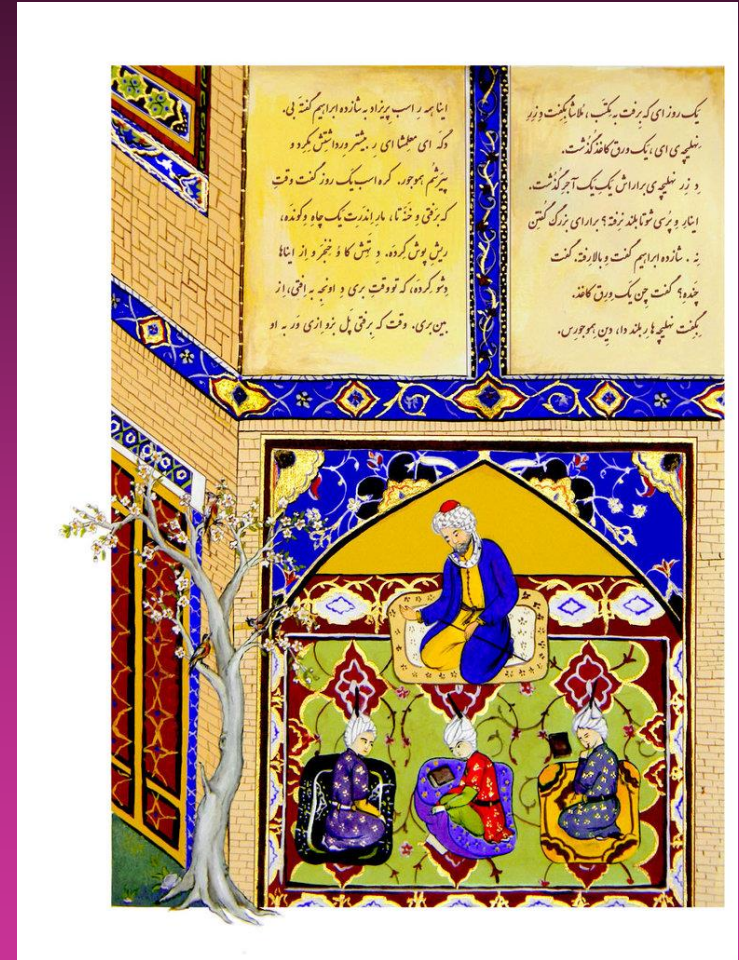 یک روز ای که برفت به مکتب، ملاشا بگفت و زیر
نهلیچه ی ای، یک ورق کاغذ گذشت.
و زیر نهلیچه ی براراش یک یک آجر گذشت.
اینار و پرسی شوتا بلند نرفته؟ برارای بزرگ گفتن
نه. شازده ابراهیم گفت و بالا رفته. گفت
چنده؟ گفت چن یک ورق کاغذ.
بگفت نهلیچه ها ر بلند دا، دین همو جورس.
اینا همه ر اسب پریزاد به شازده ابراهیم گفته بی.
دگه ای معلمشا ای ر بیشتر ور داشتش مکرد و
پیرشم همو جور. کره اسب یگ روز گفت وقت
که برفتی و خنه تا، مار اندرت یک چاه و کونده،
ریش پوش کرده. و تهش کا و خنجر و از اینا
وشو کرده، که تو وقت بری و اونجه به افتی، از
بین بری. وقت که برفتی پل بزو ازی ور به او